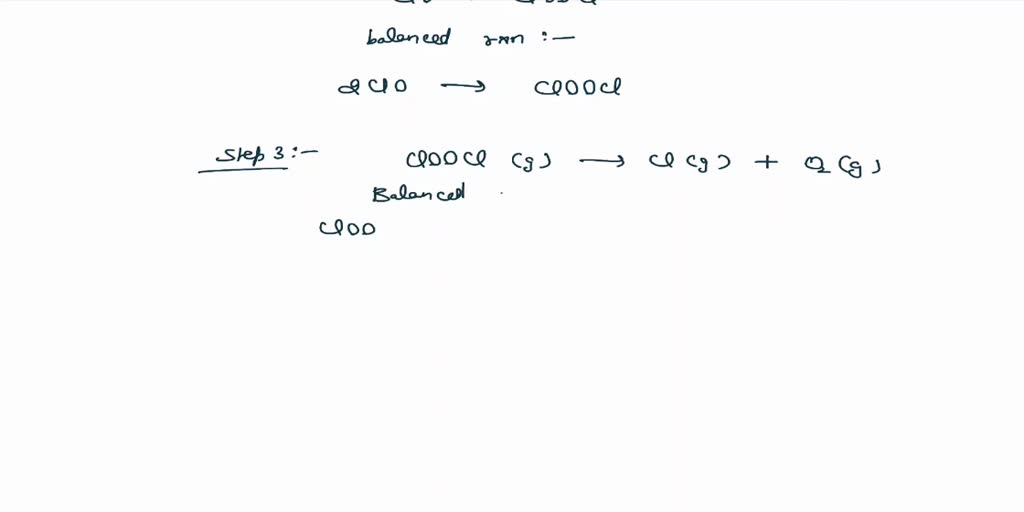 balanced rxn :-
2ClO → ClOOCl
Step 3 :- ClOOCl (g) → Cl (g) + O2 (g)
Balanced
ClOO